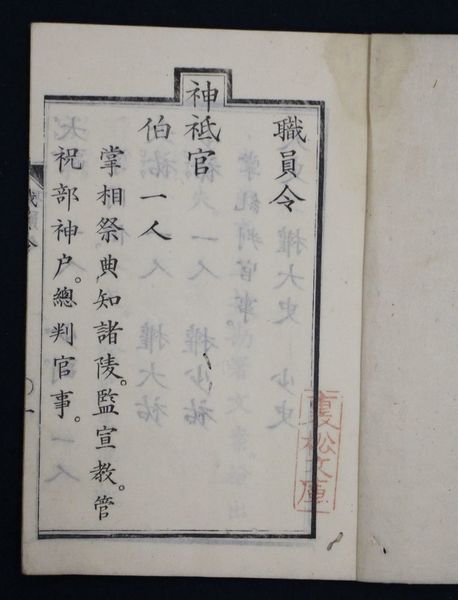 職員令
神祇官
伯 一人
掌相祭典、知諸陵。監宣教。管
祝部神户。總判官事。
松文庫